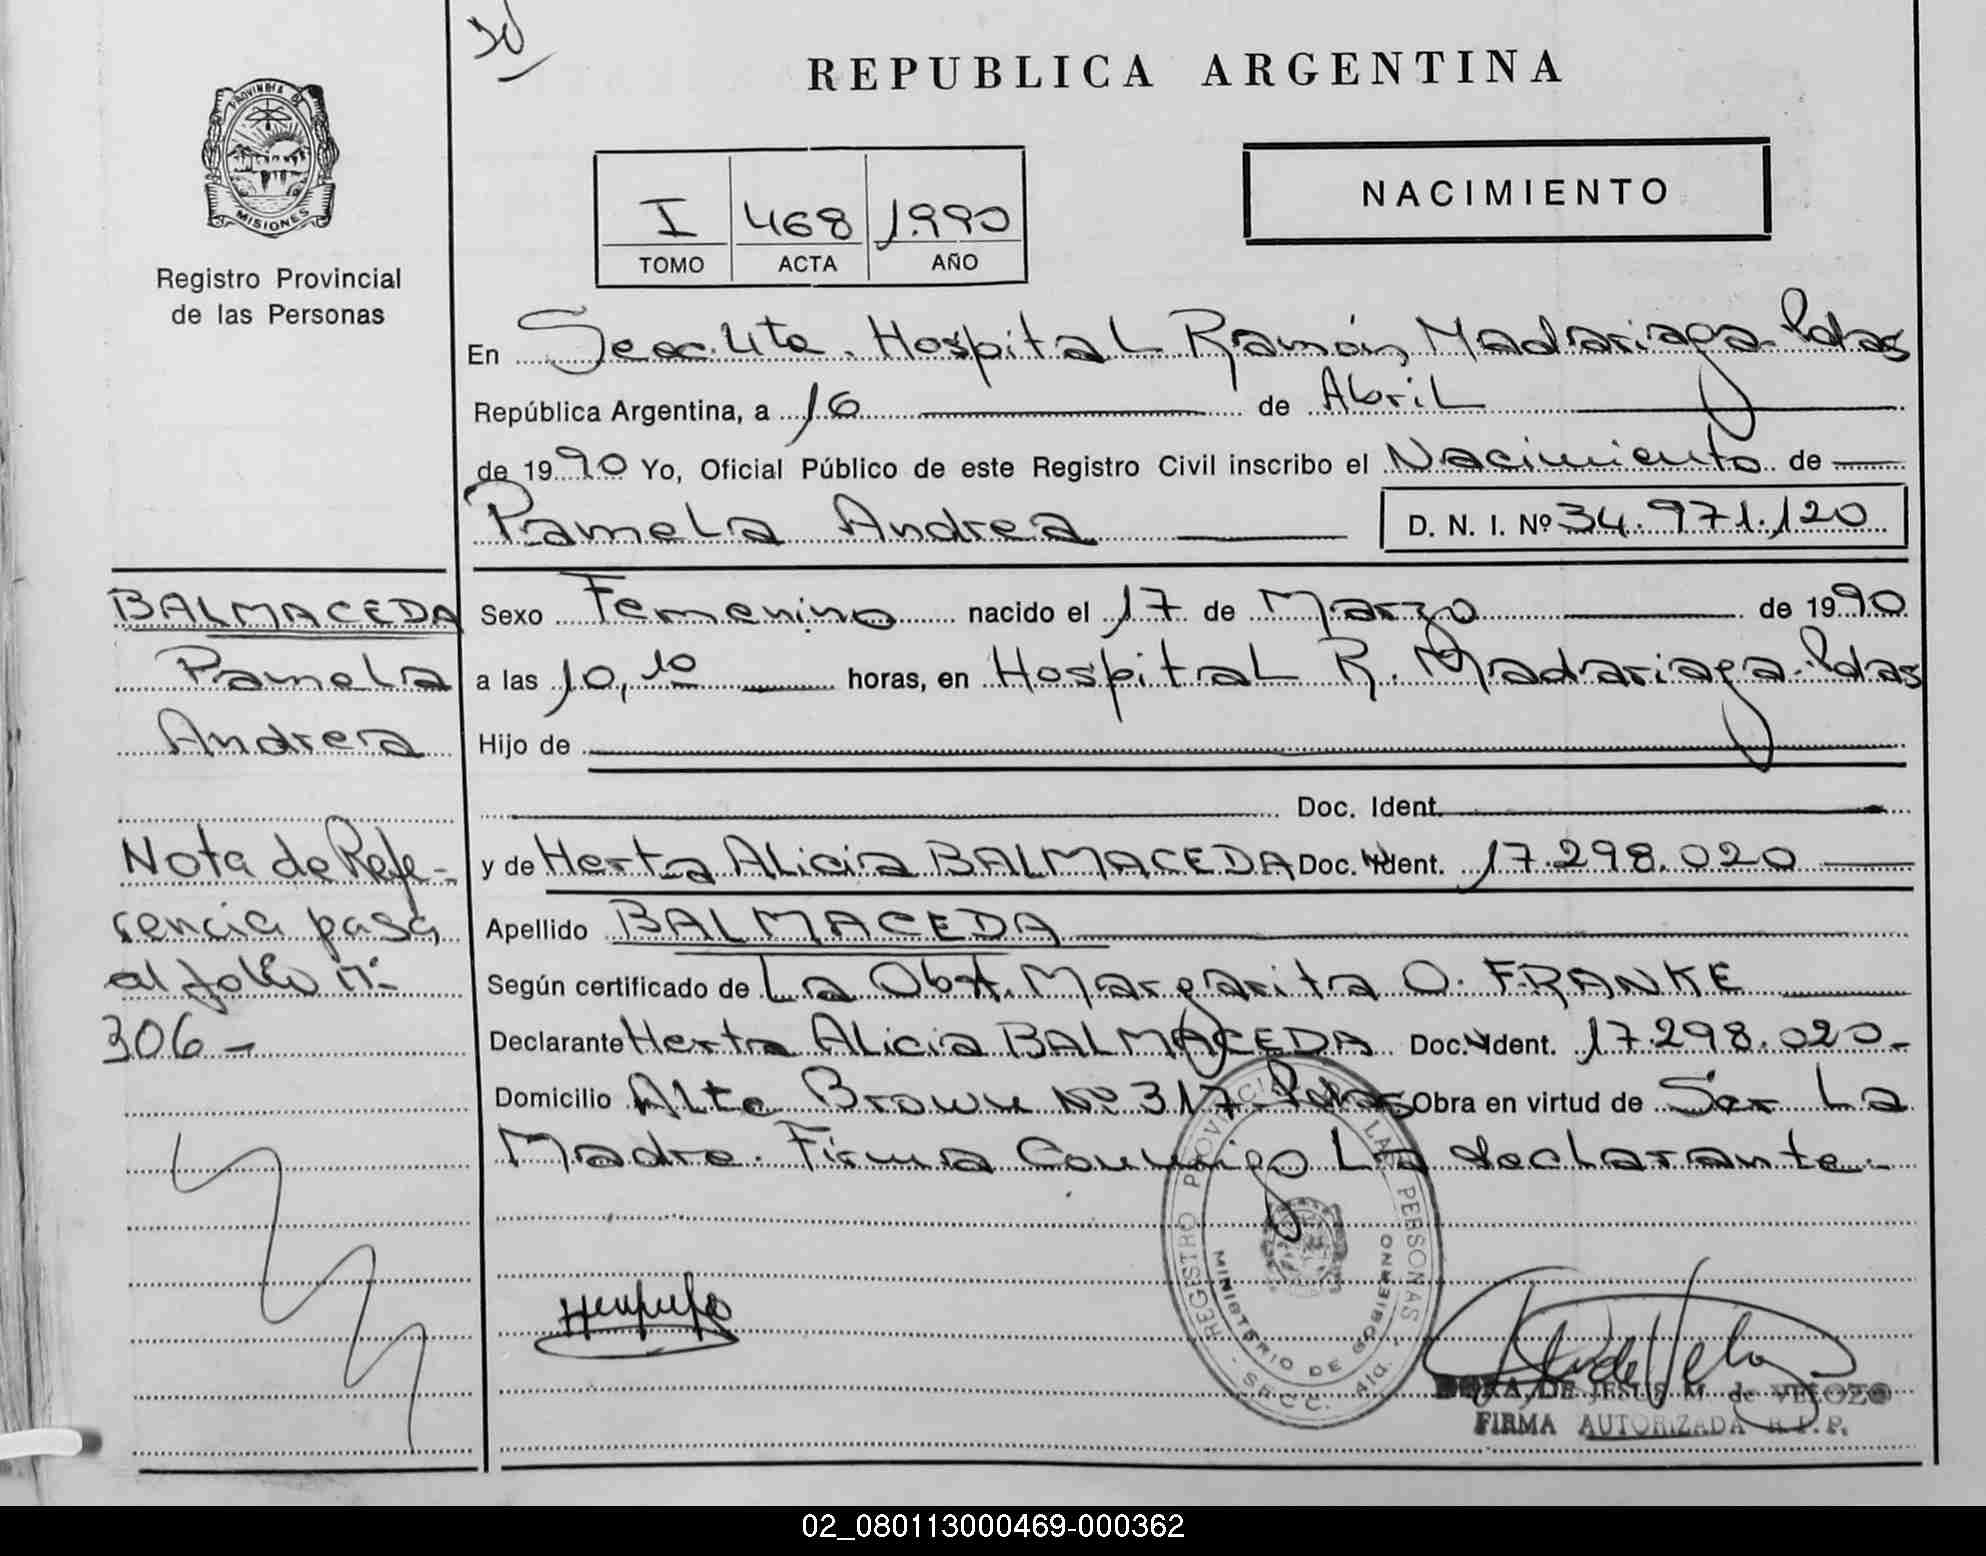 30
REPUBLICA ARGENTINA
PROVINCIA DE
MISIONES
Registro Provincial
de las Personas
I 468 1.990
TOMO ACTA AÑO
NACIMIENTO
En Secc. 4ta. Hospital Ramón Madariaga - Pdas
República Argentina, a 16 de Abril
de 1990 Yo, Oficial Público de este Registro Civil inscribo el Nacimiento de
Pamela Andrea D. N. I. Nº 34.971.120
BALMACEDA
Pamela
Andrea
Nota de Refe-
rencia pasa
al folio Nº
306 -
Sexo Femenino nacido el 17 de Marzo de 1990
a las 10,10 horas, en Hospital R. Madariaga - Pdas
Hijo de
Doc. Ident.
y de Herta Alicia BALMACEDA Doc. Ident. 17.298.020
Apellido BALMACEDA
Según certificado de La Obst. Margarita O. FRANKE
Declarante Herta Alicia BALMACEDA Doc. Ident. 17.298.020 -
Domicilio Alte Brown Nº 317 - Pdas Obra en virtud de Ser La
Madre. Firma Conmigo La declarante.-
REGISTRO PROVINCIAL DE LAS PERSONAS
MINISTERIO DE GOBIERNO
DORA DE JESUS M. de VELOZO
FIRMA AUTORIZADA R.P.P.
02_080113000469-000362